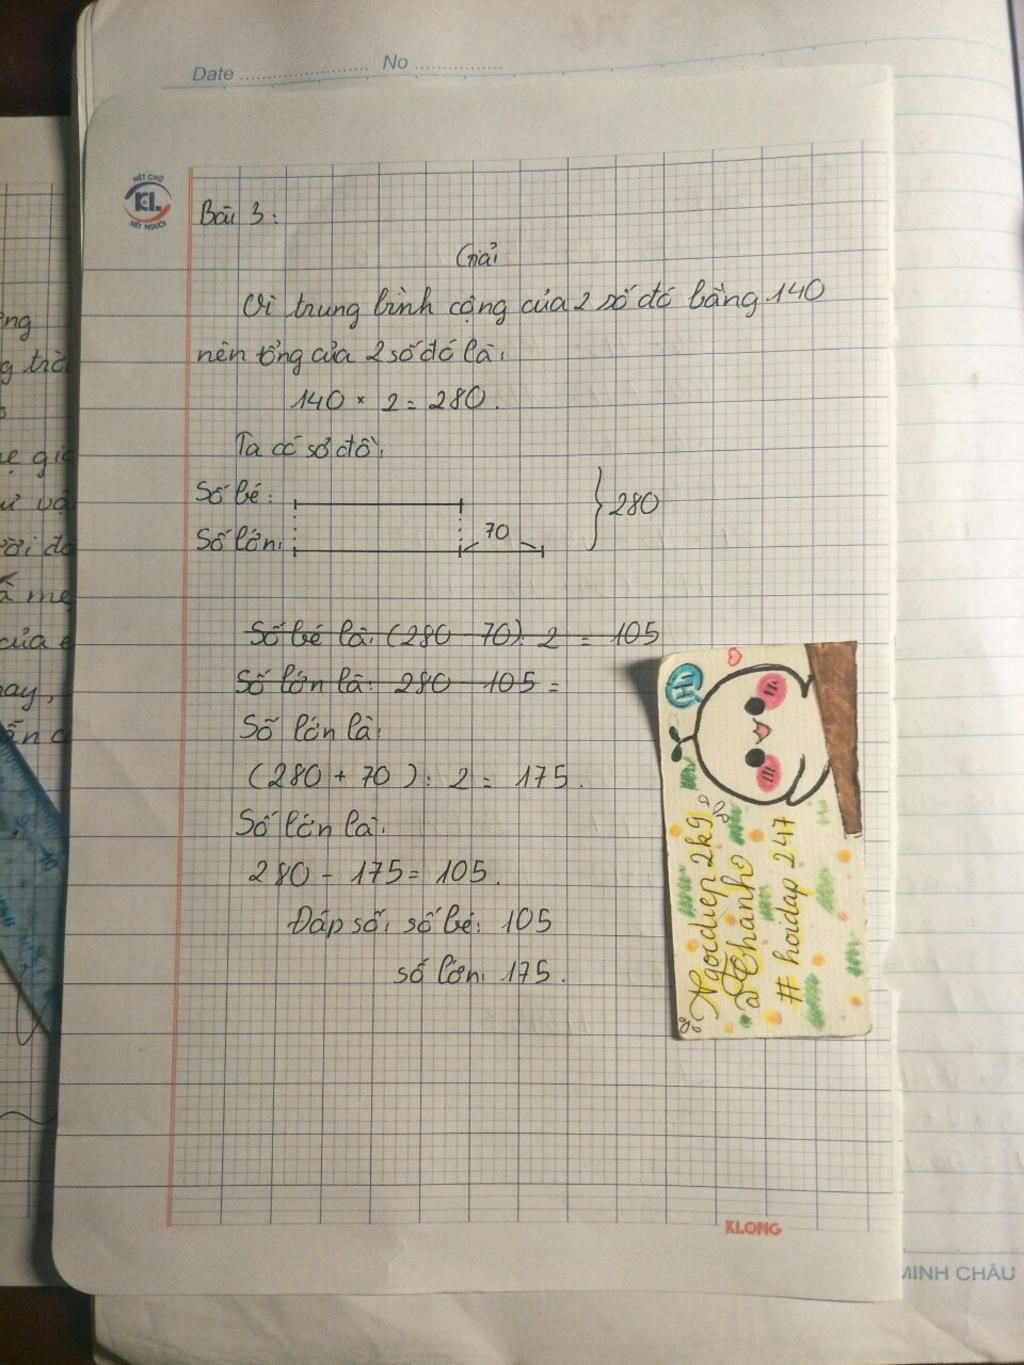 Date No
NÉT CHỮ
KL
NÉT NGƯỜI
Bài 3:
Giải
Vì trung bình cộng của 2 số đó bằng 140
nên tổng của 2 số đó là:
140 × 2 = 280.
Ta có sơ đồ:
Số bé:
280
Số lớn:
70
Số bé là: (280 - 70): 2 = 105
Số lớn là: 280 - 105 =
Số lớn là:
(280 + 70): 2 = 175.
Số lớn là:
280 - 175 = 105.
Đáp số: số bé: 105
số lớn: 175.
Hi
Ngocdiep2kg
Thanh
# hoidap 247
KLONG
MINH CHÂU
ng
g trờ
ẹ gi
ời đ
mẹ
của e
ay,